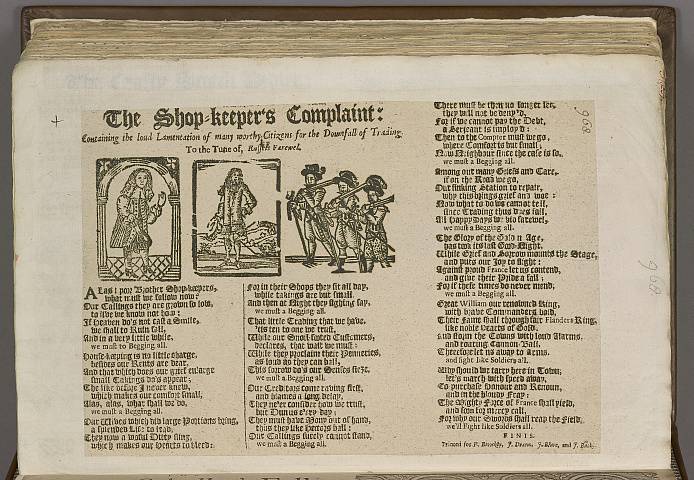 The Shop-keeper's Complaint:
Containing the loud Lamentation of many worthy Citizens for the Downfall of Trading.
To the Tune of, Farewel.
ALas! poor Brother Shop-keepers,
what must we follow now?
Our Callings they are grown so low,
to live we know not how:
If Heaven do's not cast a Smile,
we shall to Ruin fall,
And in a very little while,
we must to Begging all.
House-keeping is no little charge,
besides our Rents are dear,
And that which does our grief enlarge
small Takings do's appear;
The like before I never knew,
which makes our comfort small,
Alas, alas, what shall we do,
we must a Begging all.
Our Wives which did large Portions bring,
a splended Life to lead,
They now a woful Ditty sing,
which makes our Hearts to bleed:
For in their Shops they sit all day,
while takings are but small,
And then at Night they sighing say,
we must a Begging all.
That little Trading that we have,
'tis ten to one we trust,
While our Customers,
declares, that wait we must:
While they proclaim their Penneries,
as loud as they can ball,
This sorrow do's our Senses seize,
we must a Begging all.
Our Creditors come craving first,
and blames a long delay,
They never consider how we trust,
but Dun us e'ry day:
They must have Mony out of hand,
thus they like Hectors ball:
Our Callings surely cannot stand,
we must a Begging all.
There must be then no longer let,
they will not be deny'd,
For if we cannot pay the Debt,
a Serjeant is imploy'd:
Then to the Compter must we go,
where Comfort is but small,
Now Neighbour since the case is so,
we must a Begging all.
Among our many Griefs and Care,
if on the Road we go,
Our sinking Station to repair,
why this brings grief and woe:
Now what to do we cannot tell,
since Trading thus does fall,
All happy days we bid farewel,
we must a Begging all.
The Glory of the Golden Age,
has took its last Good-Night,
While Grief and Sorrow mounts the Stage,
and puts our Joy to flight:
Against proud France let us contend,
and give their Pride a fall:
For if these times do never mend,
we must a Begging all.
Great William our renowned King,
with brave Commanders bold,
Their Fame shall through fair Flanders Ring,
like noble Hearts of Gold,
And storm the Towns with loud Alarms,
and roaring Cannon Ball,
Therefore let us away to Arms,
and fight like Soldiers all.
Why should we tarry here in Town,
let's march with speed away,
To purchase Honour and Renown,
and in the bloudy Fray:
The Mighty Force of France shall yield,
and soon for mercy call,
For why our Swords shall reap the Field,
we'll Fight like Soldiers all.
FINIS.
Printed for P. Brooksby, J. Deacon, J. Blare, and J. Back.
968
968